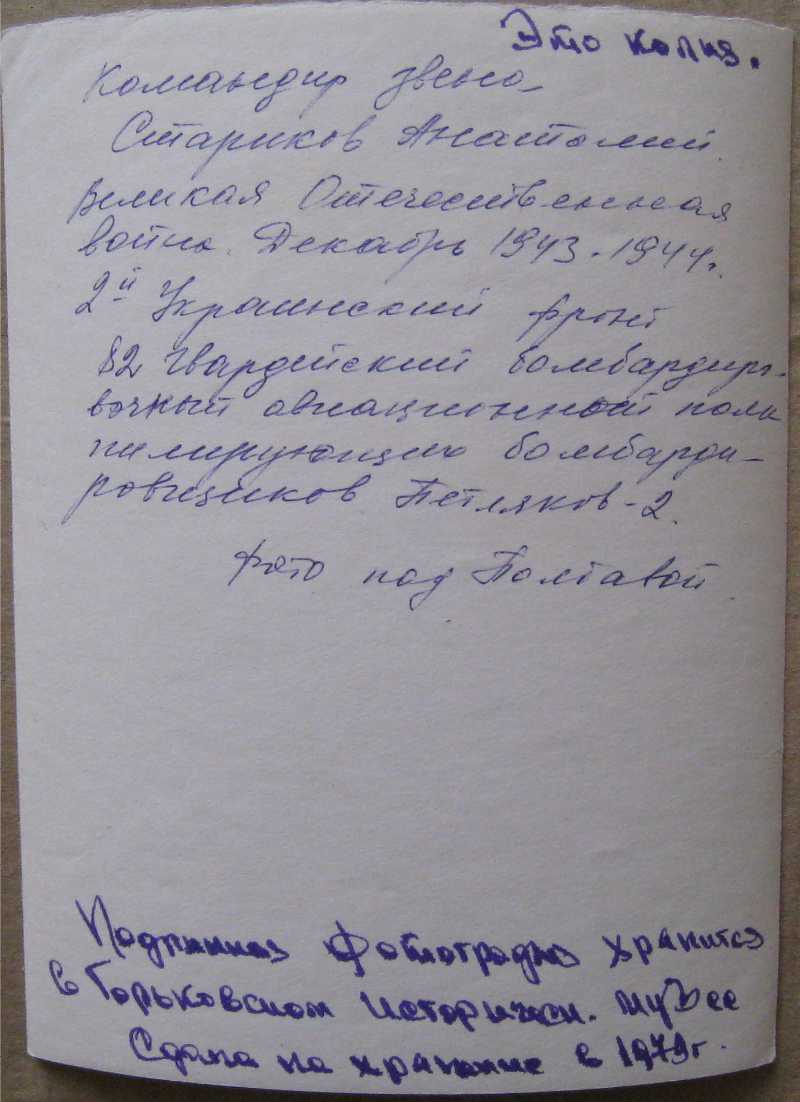 Это копия.
Командир звена
Стариков Анатолий
Великая Отечественная
война. Декабрь 1943-1944г.
2й Украинский фронт
82 Гвардейский бомбардиро-
вочный авиационный полк
пикирующих бомбарди-
ровщиков Петляков-2.
Фото под Полтавой
Подлинная фотография хранится
в Горьковском историческ. музее
Сдана на хранение в 1979г.